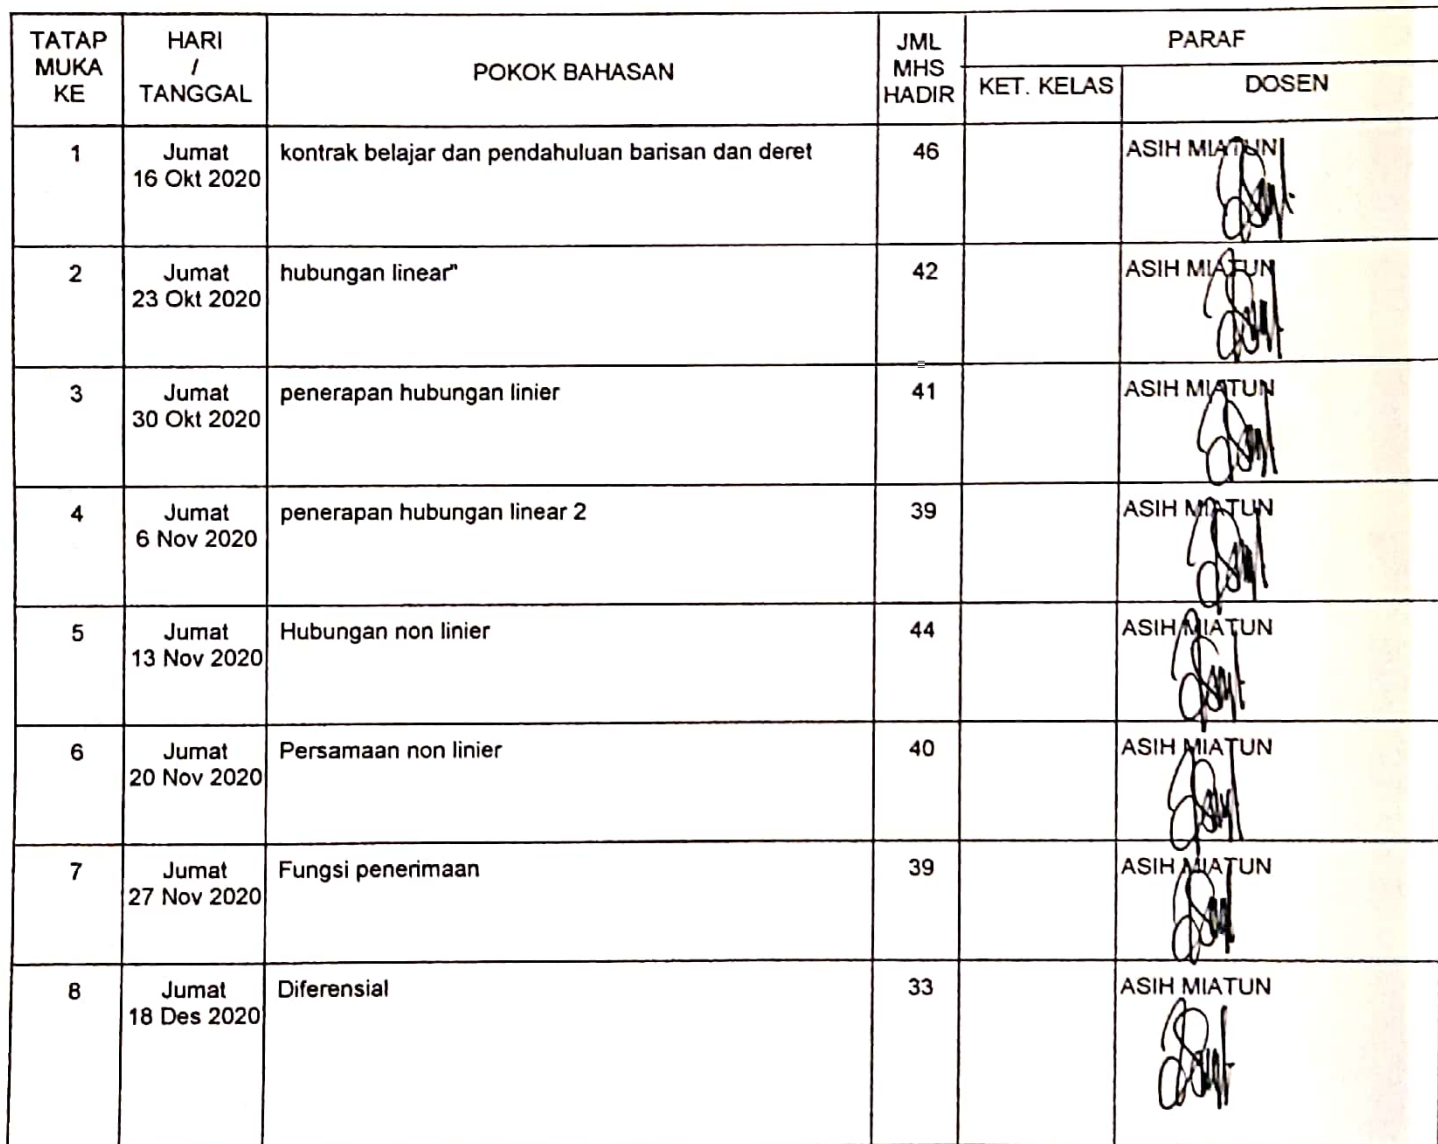 TATAP MUKA KE | HARI / TANGGAL | POKOK BAHASAN | JML MHS HADIR | PARAF
KET. KELAS | DOSEN
1 | Jumat 16 Okt 2020 | kontrak belajar dan pendahuluan barisan dan deret | 46 | | ASIH MIATUN
2 | Jumat 23 Okt 2020 | hubungan linear" | 42 | | ASIH MIATUN
3 | Jumat 30 Okt 2020 | penerapan hubungan linier | 41 | | ASIH MIATUN
4 | Jumat 6 Nov 2020 | penerapan hubungan linear 2 | 39 | | ASIH MIATUN
5 | Jumat 13 Nov 2020 | Hubungan non linier | 44 | | ASIH MIATUN
6 | Jumat 20 Nov 2020 | Persamaan non linier | 40 | | ASIH MIATUN
7 | Jumat 27 Nov 2020 | Fungsi penerimaan | 39 | | ASIH MIATUN
8 | Jumat 18 Des 2020 | Diferensial | 33 | | ASIH MIATUN